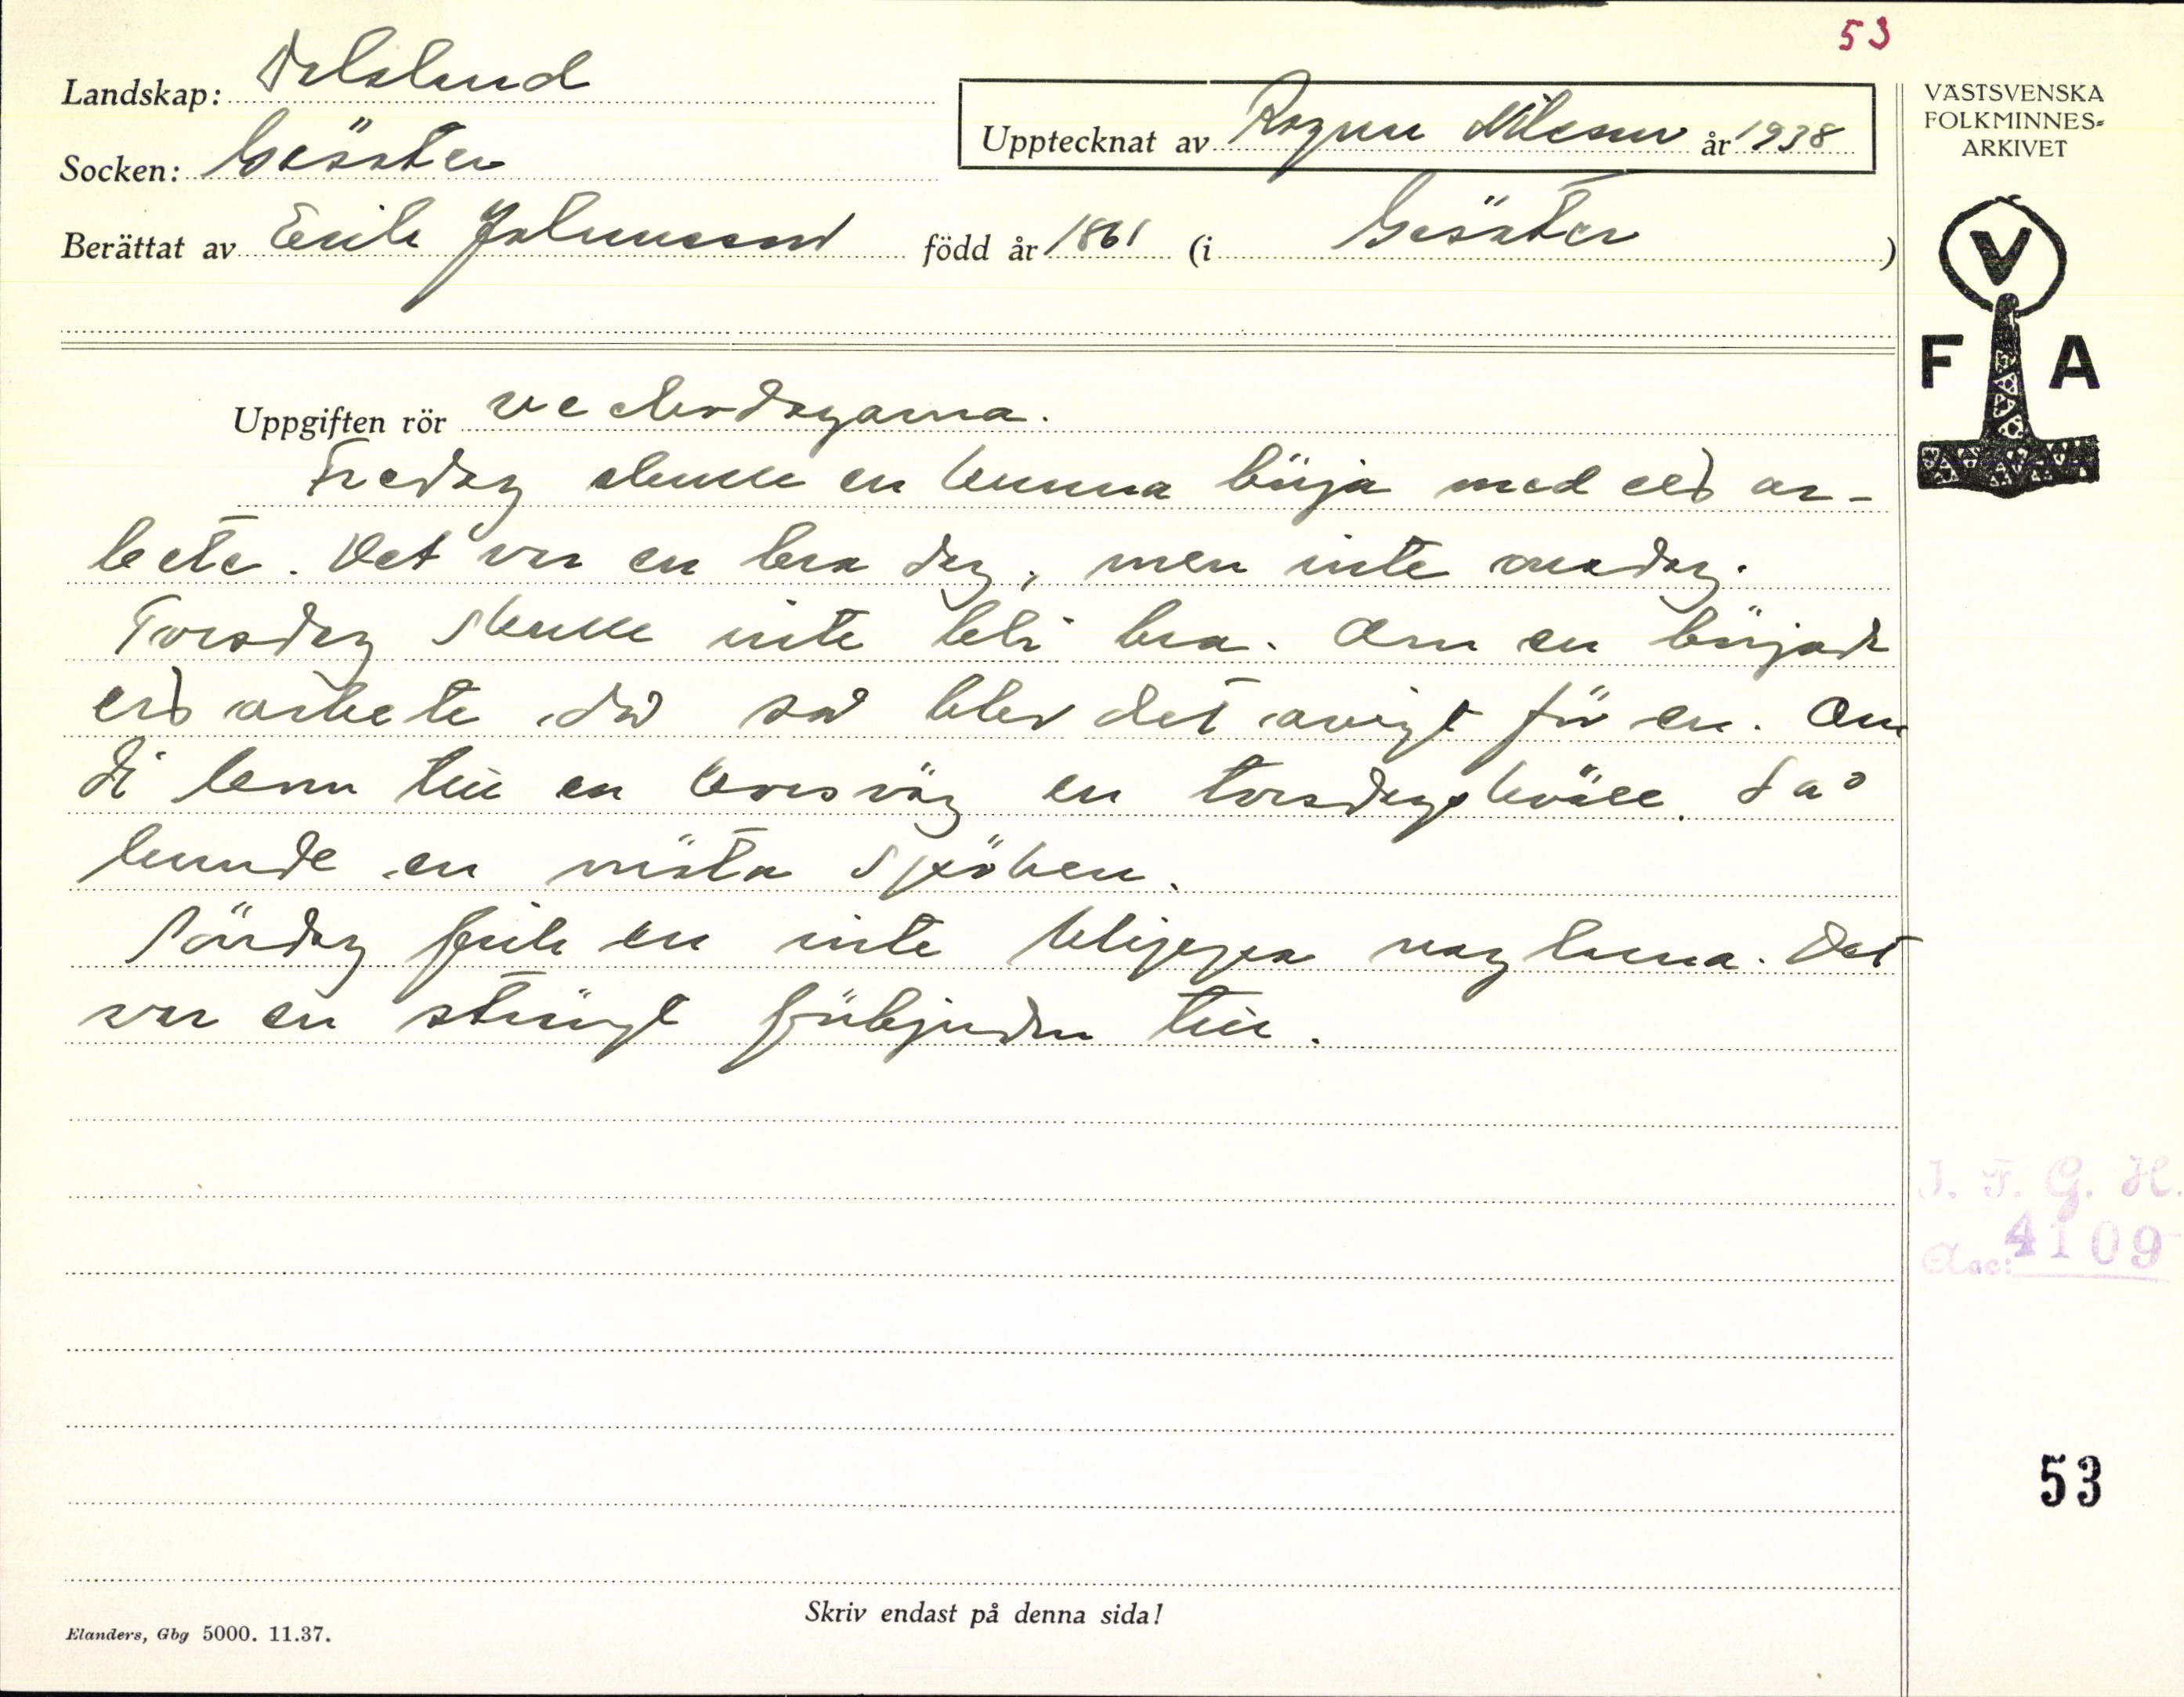 53
Landskap: Dalsland
Upptecknat av Ragnar Nilsson år 1938
Socken: Gesäter
Berättat av Erik Johansson född år 1861 (i Gesäter)
VÄSTSVENSKA
FOLKMINNES=
ARKIVET
V
F A
Uppgiften rör veckodagarna.
Fredag skulle en kunna börja med ett ar-
bete. Det var en bra dag, men inte onsdag.
Torsdag skulle inte bli bra. Om en börjad
ett arbete då så blev det avigt för en. Om
di kom till en korsväg en torsdagskväll. så
kunde en möta spöken.
Söndag fick en inte klippa naglarna. Det
var en strängt förbjuden till.
J. F. G. H.
Acc: 4109
53
Skriv endast på denna sida!
Elanders, Gbg 5000. 11.37.